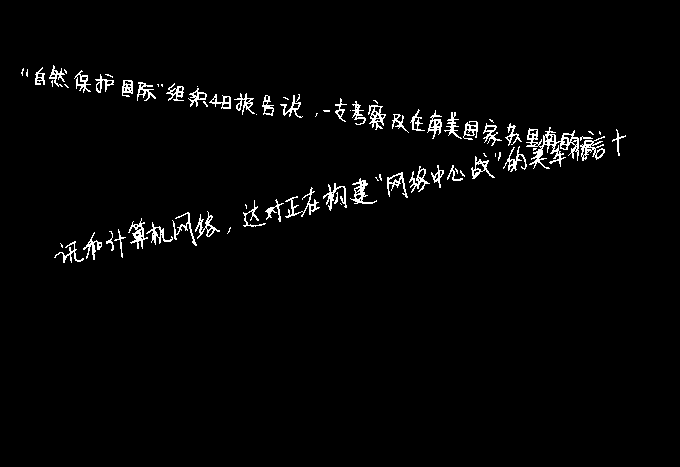 “自然保护国际”组织4日报告说，一支考察队在南美国家苏里南的
讯和计算机网络，这对正在构建“网络中心战”的美军